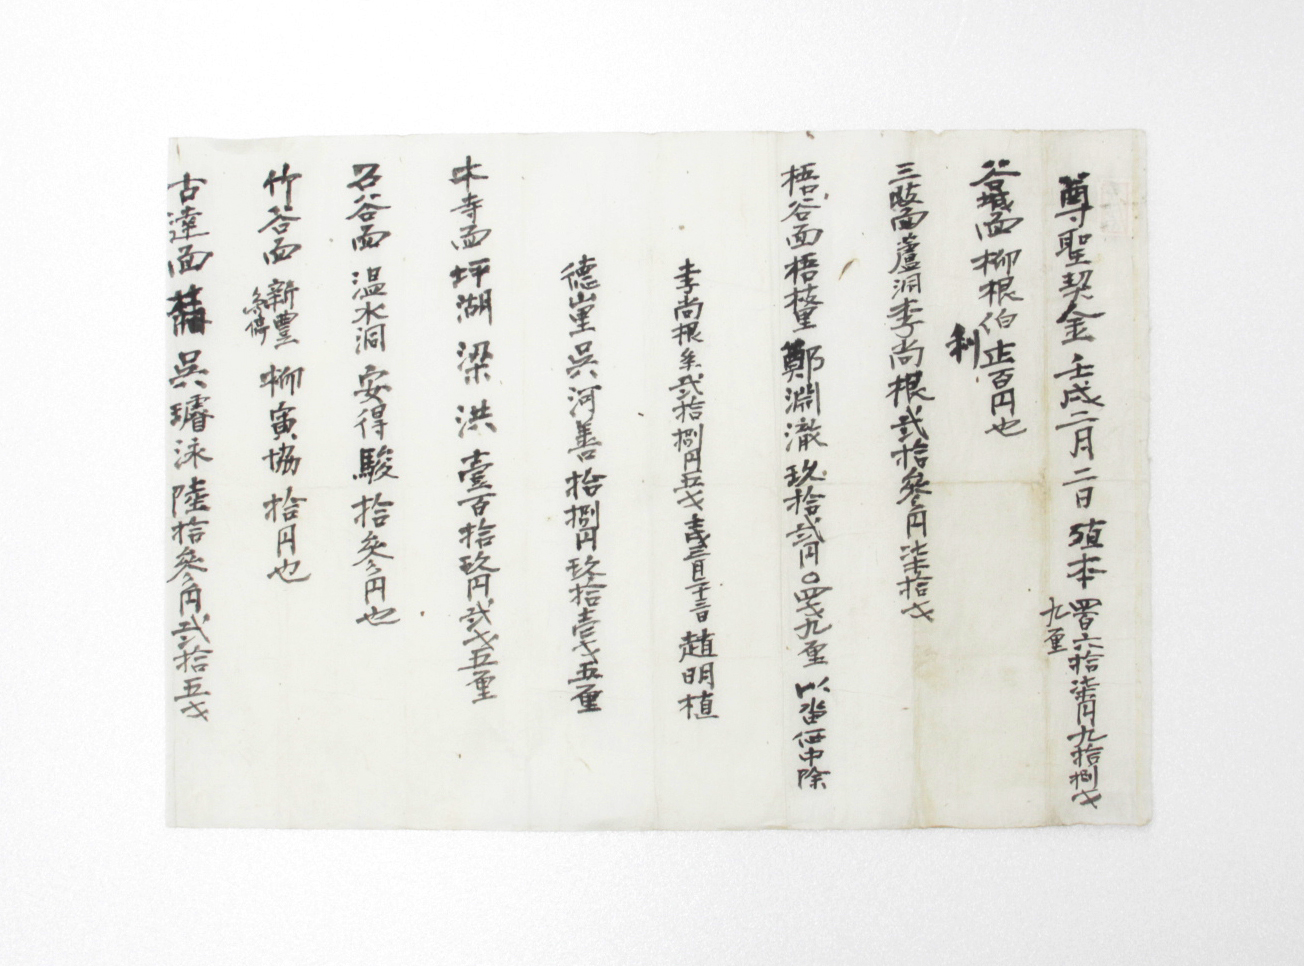 尊聖契金 壬戌二月二日 殖本 四百六十柒円九拾捌戈
九厘
谷城面 柳根伯 正百円也
利
三岐面蘆洞李尚根 貳拾參円柒拾戈
梧谷面梧枝里 鄭淵澈 玖拾貳円〇四戈九厘 以畓価中除
李尚根 条 貳拾捌円五戈 壬戌三月二十三日 趙明植
德山里 吳河善 拾捌円玖拾壹戈五厘
木寺面 坪湖 梁洪 壹百拾玖円貳戈五厘
石谷面 溫水洞 安得駿 拾參円也
竹谷面 新豊 柳寅協 拾円也
条得
古達面 吳璿泳 陸拾參円貳拾五戈